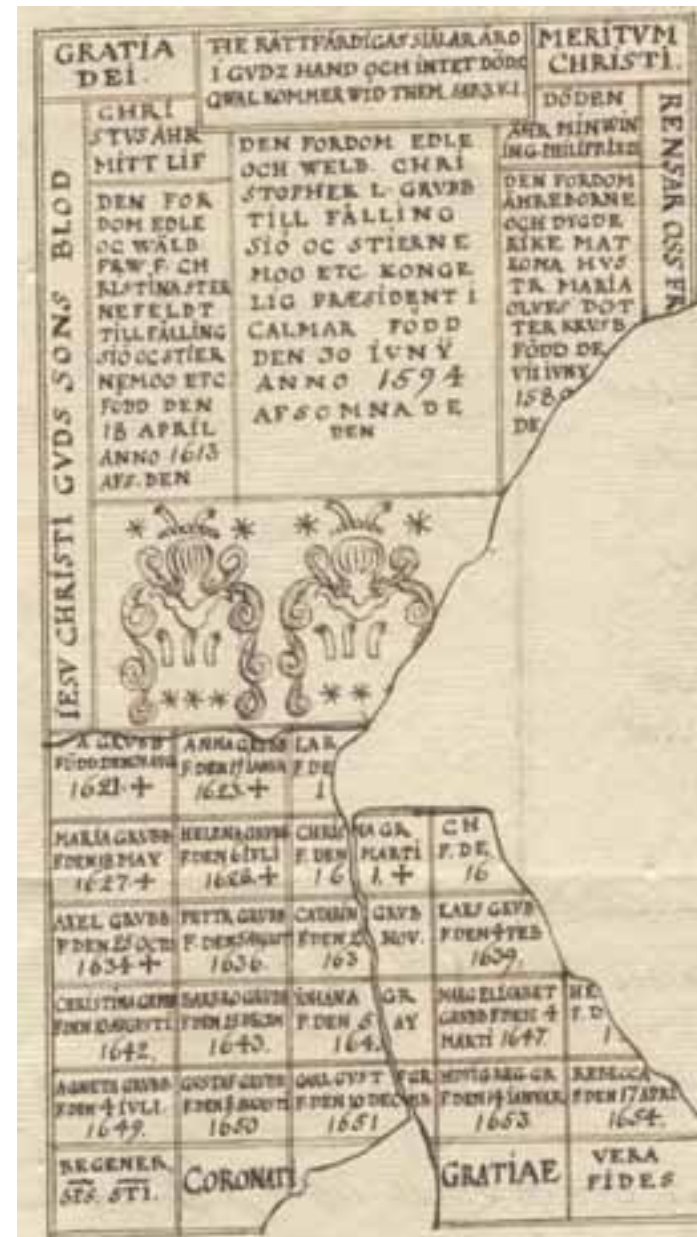 GRATIA
DEI.
THE RÄTTFÄRDIGAS SIÄLAR ÄRO
I GVDZ HAND OCH INTET DÖDS
QWAL KOMMER WID THEM. SAP. 3. V. 1.
MERITVM
CHRISTI.
IESV CHRISTI GVDS SONS BLOD
CHRI
STVS ÄHR
MITT LIF
DEN FOR
DOM EDLE
OC WÄLB
FRW. F. CH
RISTINA STER
NEFELDT
TILL FÄLLING
SIÖ OC STIER
NEMOO ETC
FÖDD DEN
18 APRIL
ANNO 1613
AFS. DEN
DEN FORDOM EDLE
OCH WELB. CHRI
STOPHER L. GRVBB
TILL FÄLLING
SIÖ OC STIERNE
MOO ETC. KONGE
LIG PRÆSIDENT I
CALMAR FÖDD
DEN 30 IVNY
ANNO 1594
AFSOMNADE
DEN
DÖDEN
ÄHR MIN WIN
ING
DEN FORDOM
ÄHREBORNE
OCH DYGDE
RIKE MAT
RONA HVS
TR. MARIA
OLVES DOT
TER KRVSB
FÖDD DE
VII IVNY
158
DE
RENSAR OSS FR
A GRVBB
FÖDD DEN
1621 +
ANNA GRVBB
F. DEN 17 IANVA
1623 +
LAR
F. DE
1
MARIA GRVBB
F. DEN 18 MAY
1627 +
HELENA GRVBB
F. DEN 6 IVLI
1628 +
CHRIS NA GR
F. DEN MARTI
16 1. +
CH
F. DE.
16
AXEL GRVBB
F. DEN 25 OCTO
1634 +
PETTR GRVBB
F. DEN 5 AUGUST
1636.
CATARIN GRVB
F. DEN 2 NOV.
163
LARS GRVB
F. DEN 4 FEB
1639.
CHRISTINA GRVBB
F. DEN 10 AUGUSTI
1642.
BARBRO GRVBB
F. DEN 25 DECEM
1643.
IOHANA GR
F. DEN 5 AY
164
MARG ELISABET
GRVBB F. DEN 4
MARTI 1647.
HE
F. D
1
AGNETA GRVBB
F. DEN 4 IVLI.
1649.
GUSTAF GRVBB
F. DEN 8 AUGUSTI
1650
GR
F. DEN 10 DECEMB
1651
HEDVIG GR
F. DEN 14 IANVAR
1653
REBECCA
F. DEN 17 APRI
1654.
REGENER.
STS. STI.
CORONATI
GRATIAE
VERA
FIDES